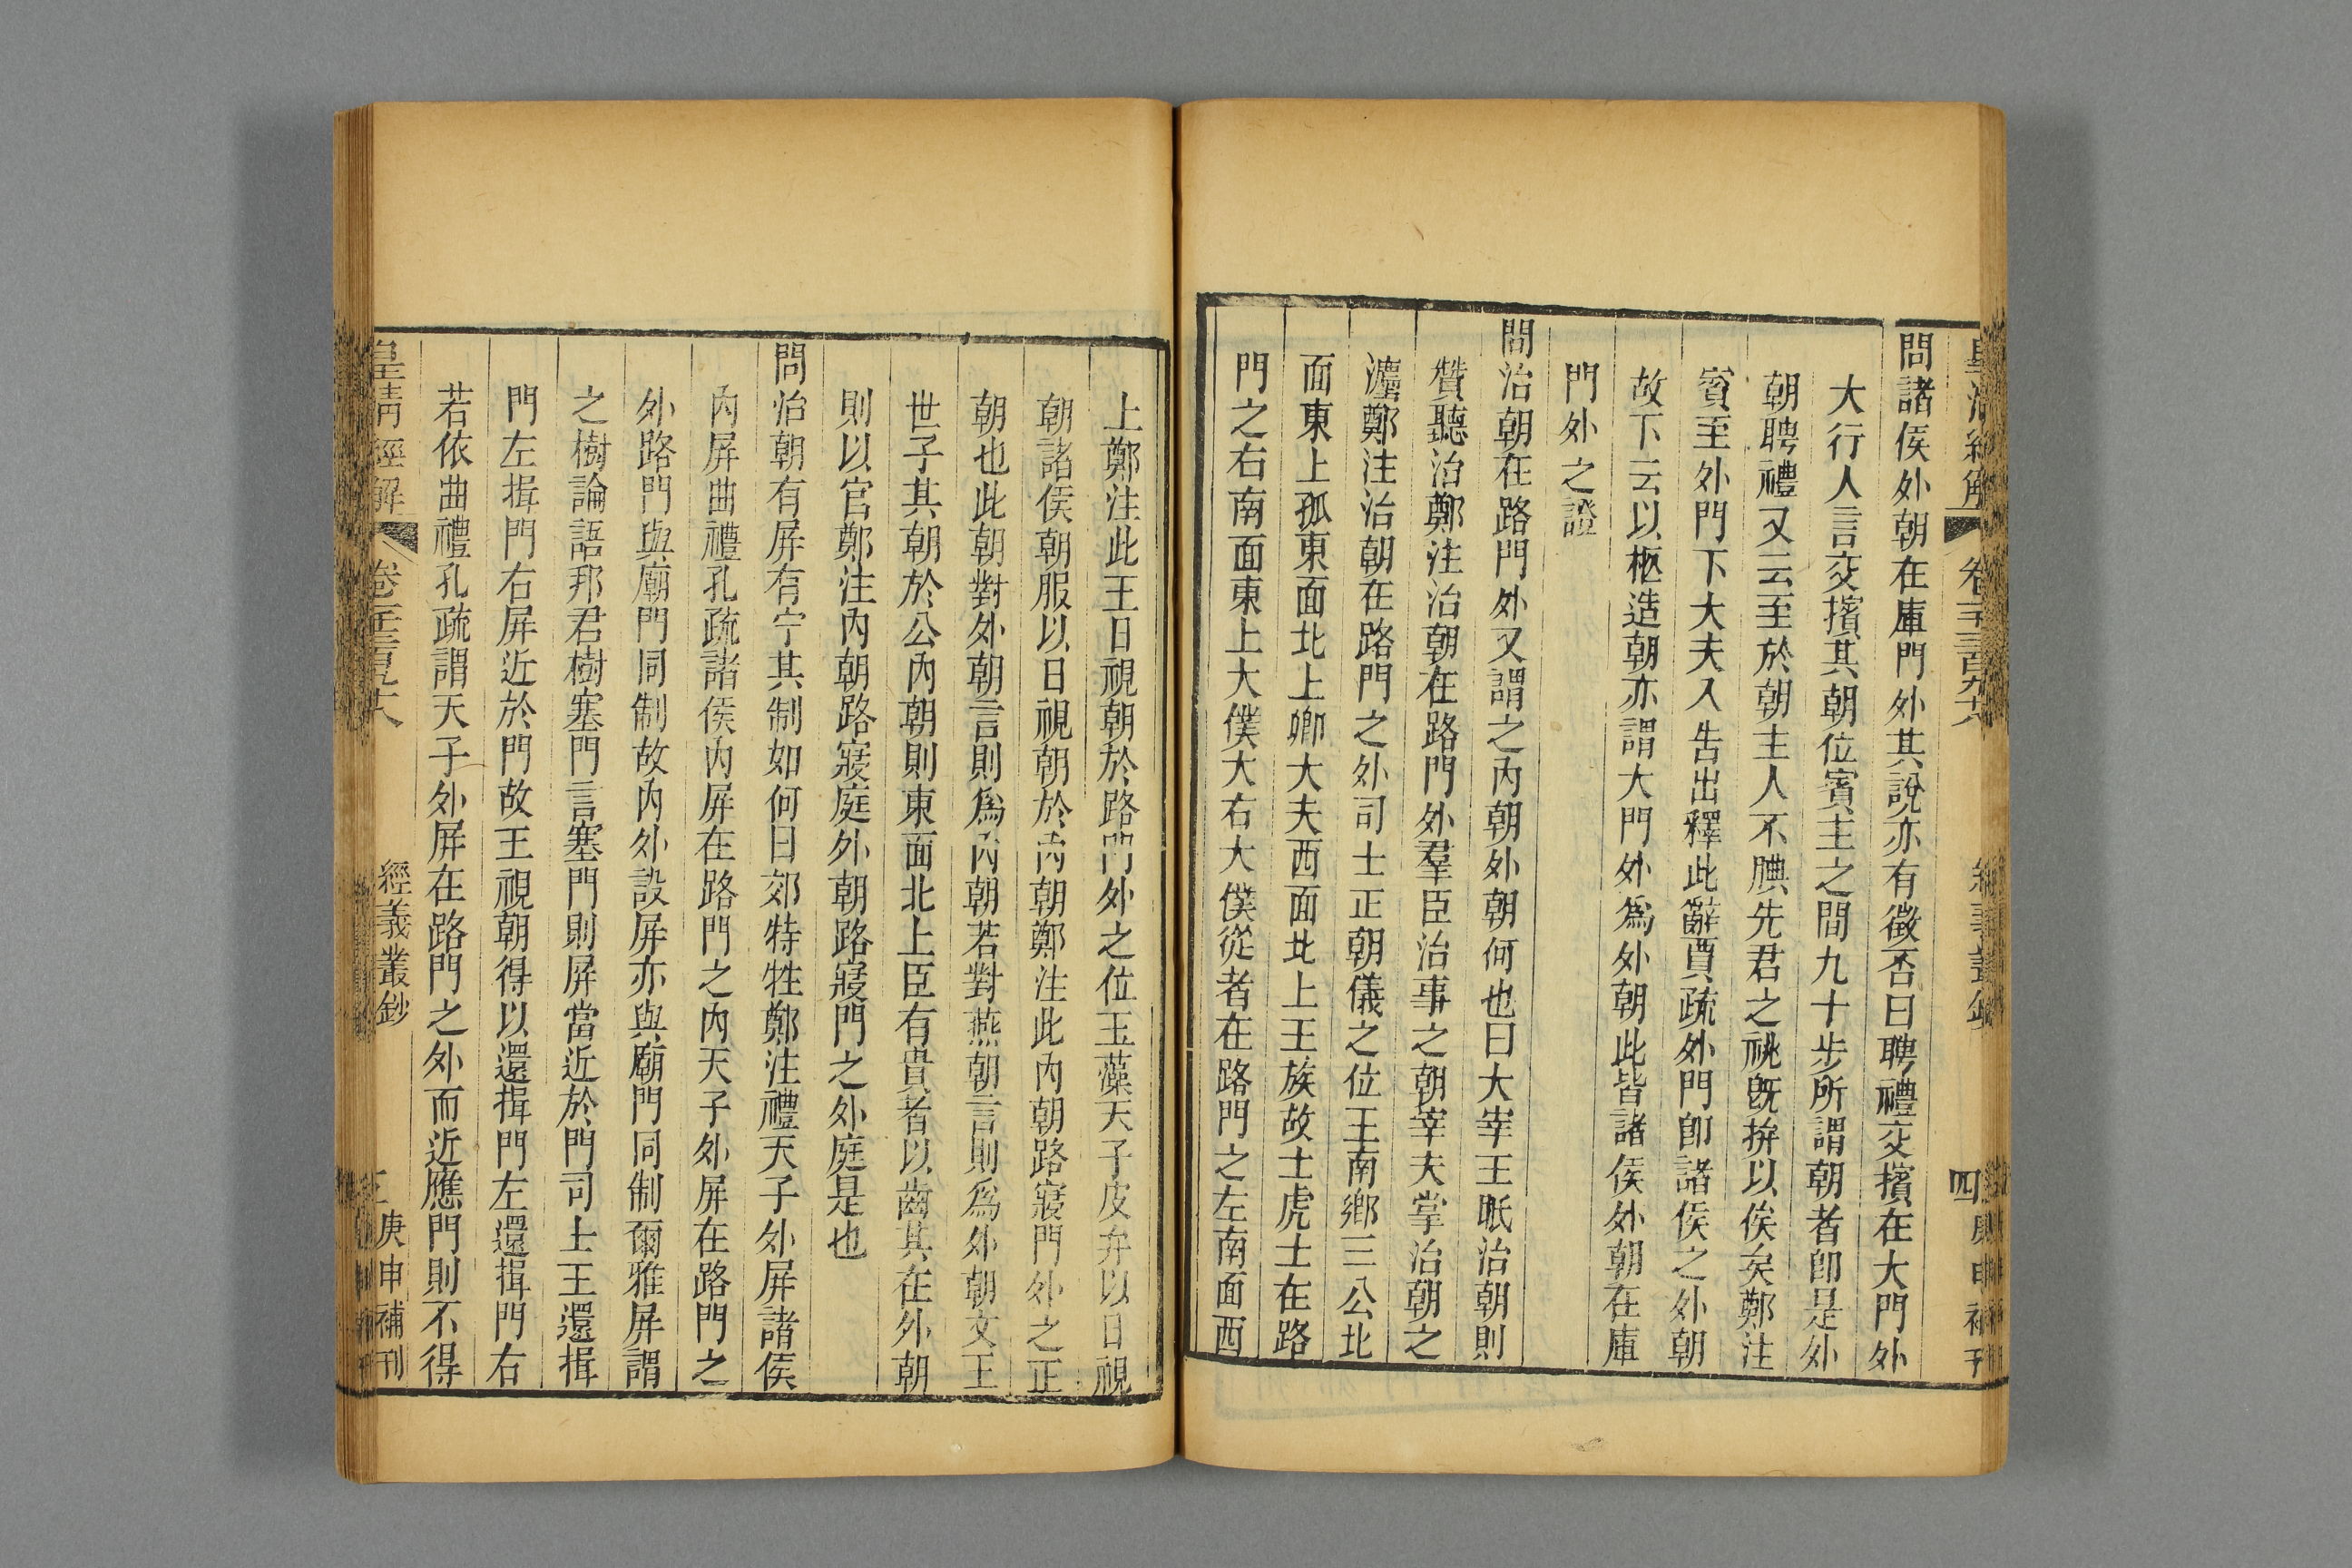 皇清經解
卷一千三百九十六
經義叢鈔
四
庚申補刊
問諸侯外朝在庫門外其說亦有徵否曰聘禮交擯在大門外
大行人言交擯其朝位賓主之間九十步所謂朝者卽是外
朝聘禮又云至於朝主人不腆先君之祧旣拚以俟矣鄭注
賓至外門下大夫入告出釋此辭賈疏外門卽諸侯之外朝
故下云以柩造朝亦謂大門外爲外朝此皆諸侯外朝在庫
門外之證
問治朝在路門外又謂之內朝外朝何也曰大宰王眡治朝則
贊聽治鄭注治朝在路門外羣臣治事之朝宰夫掌治朝之
灋鄭注治朝在路門之外司士正朝儀之位王南鄉三公北
面東上孤東面北上卿大夫西面北上王族故士虎士在路
門之右南面東上大僕大右大僕從者在路門之左南面西
上鄭注此王日視朝於路門外之位玉藻天子皮弁以日視
朝諸侯朝服以日視朝於內朝鄭注此內朝路寢門外之正
朝也此朝對外朝言則爲內朝若對燕朝言則爲外朝文王
世子其朝於公內朝則東面北上臣有貴者以齒其在外朝
則以官鄭注內朝路寢庭外朝路寢門之外庭是也
問治朝有屏有宁其制如何曰郊特牲鄭注禮天子外屏諸侯
內屏曲禮孔疏諸侯內屏在路門之內天子外屏在路門之
外路門與廟門同制故內外設屏亦與廟門同制爾雅屏謂
之樹論語邦君樹塞門言塞門則屏當近於門司士王還揖
門左揖門右屏近於門故王視朝得以還揖門左還揖門右
若依曲禮孔疏謂天子外屏在路門之外而近應門則不得
皇清經解
卷一千三百九十六
經義叢鈔
三
庚申補刊